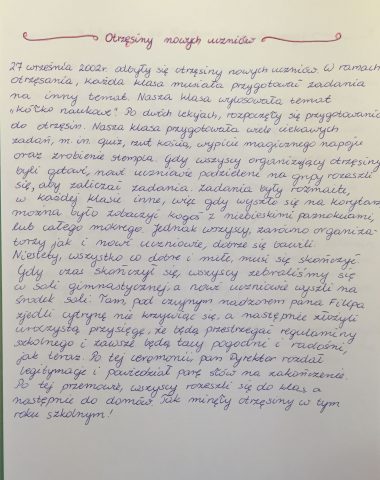 Otrzęsiny nowych uczniów
27 września 2002r. odbyły się otrzęsiny nowych uczniów. W ramach
otrzęsania, każda klasa musiała przygotować zadania
na inny temat. Nasza klasa wylosowała temat
"kółko naukowe". Po dwóch lekcjach, rozpoczęły się przygotowania
do otrzęsin. Nasza klasa przygotowała wiele ciekawych
zadań, m.in. quiz, rzut kością, wypicie magicznego napoju
oraz zrobienie stempla. Gdy wszyscy organizujący otrzęsiny
byli gotowi, nowi uczniowie podzieleni na grupy rozeszli
się, aby zaliczać zadania. Zadania były rozmaite,
w każdej klasie inne, więc gdy wyszło się na korytarz
można było zobaczyć kogoś z niebieskimi paznokciami,
lub całego mokrego. Jednak wszyscy, zarówno organiza-
torzy jak i nowi uczniowie, dobrze się bawili.
Niestety, wszystko co dobre i miłe, musi się skończyć.
Gdy czas skończył się, wszyscy zebraliśmy się
w sali gimnastycznej, a nowi uczniowie wyszli na
środek sali. Tam, pod czujnym nadzorem pana Filipa
zjedli cytrynę nie krzywiąc się, a następnie złożyli
uroczystą przysięgę, że będą przestrzegać regulaminy
szkolnego i zawsze będą tacy pogodni i radośni,
jak teraz. Po tej ceremonii, pan Dyrektor rozdał
legitymacje i powiedział parę słów na zakończenie.
Po tej przemowie, wszyscy rozeszli się do klas, a
następnie do domów. Tak minęły otrzęsiny w tym
roku szkolnym!